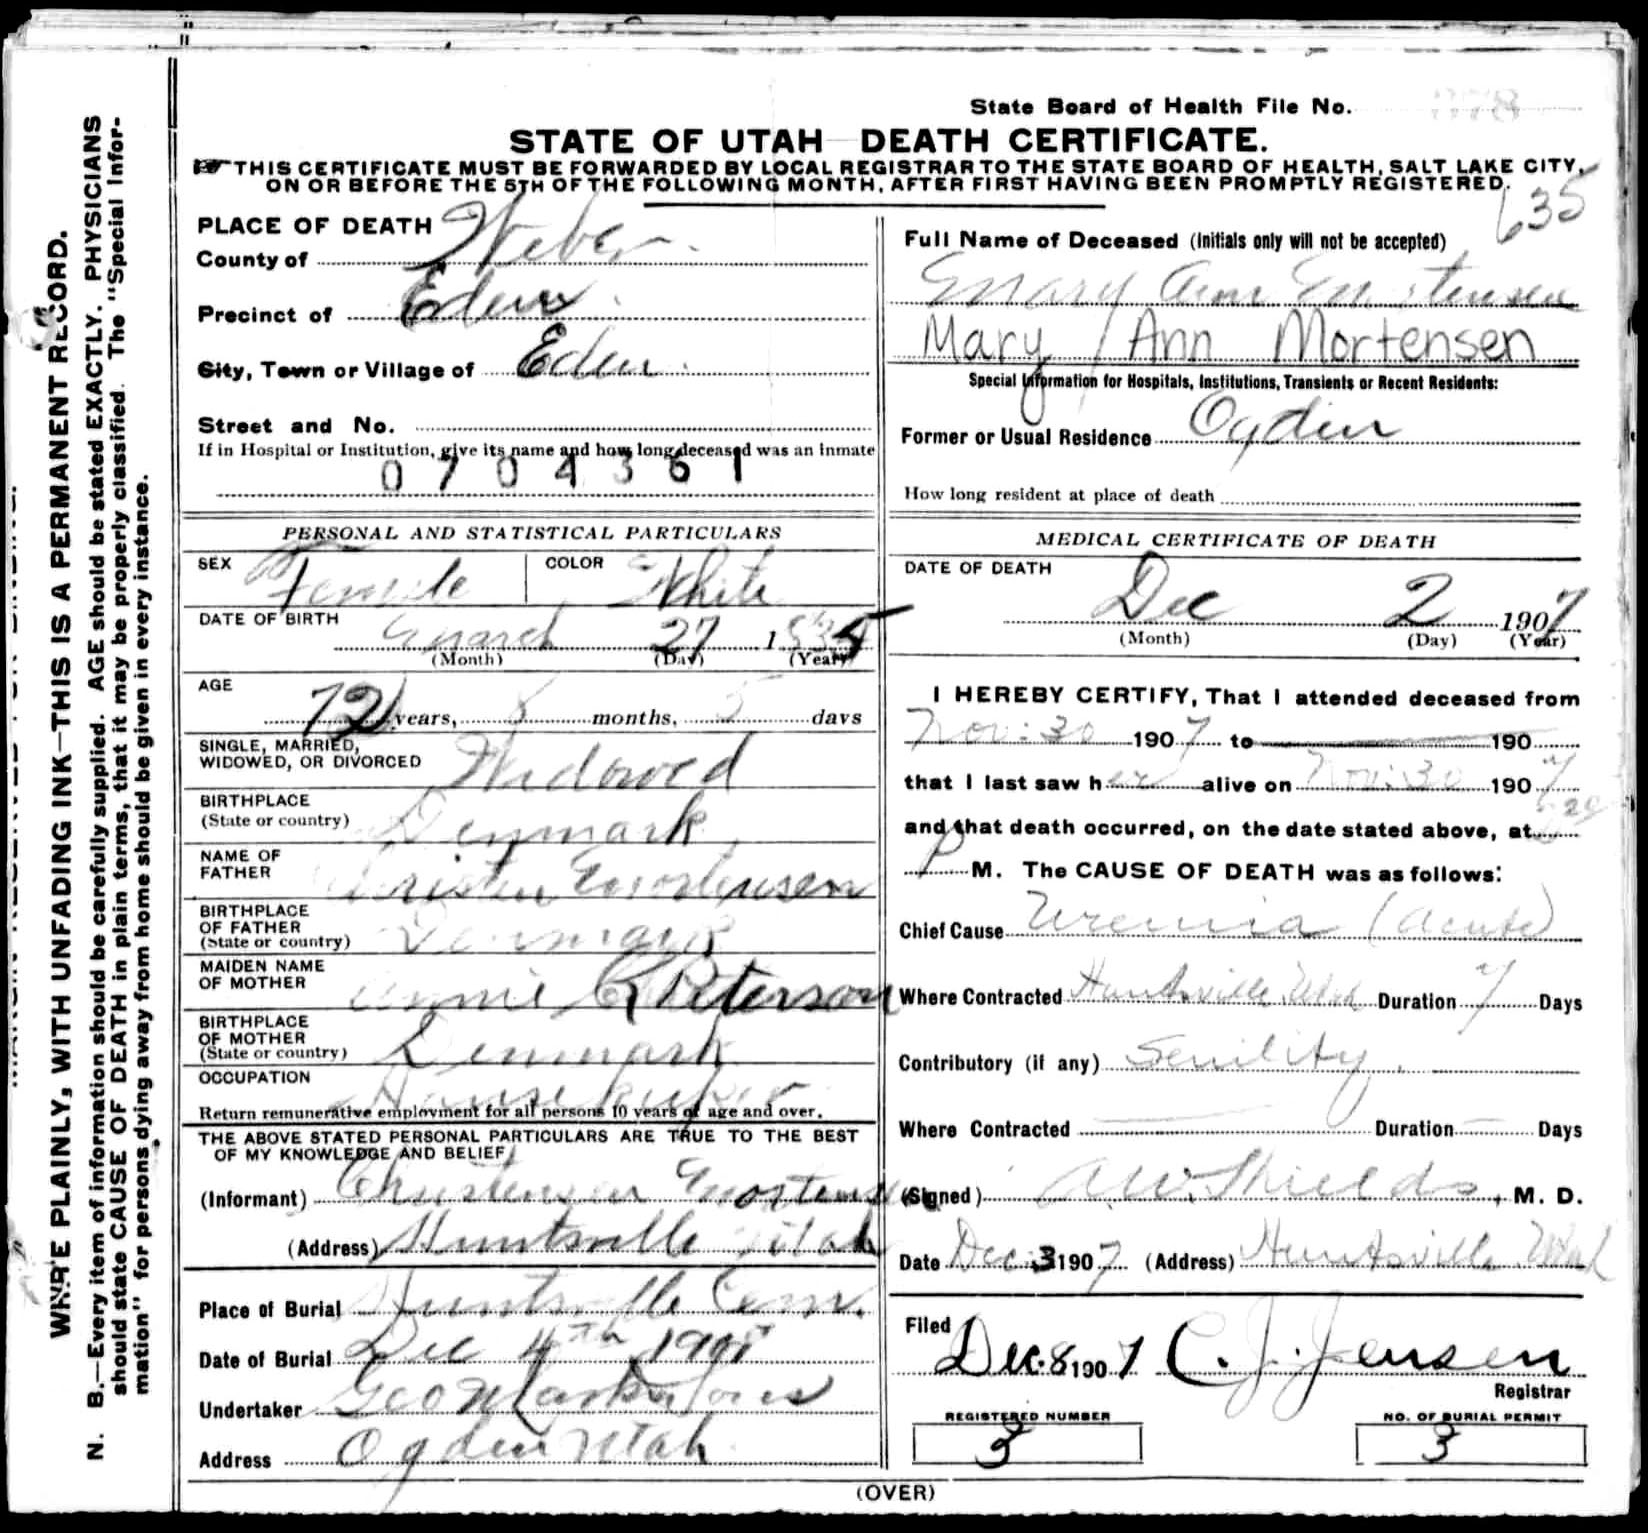 State Board of Health File No.
STATE OF UTAH DEATH CERTIFICATE.
THIS CERTIFICATE MUST BE FORWARDED BY LOCAL REGISTRAR TO THE STATE BOARD OF HEALTH, SALT LAKE CITY,
ON OR BEFORE THE 5TH OF THE FOLLOWING MONTH, AFTER FIRST HAVING BEEN PROMPTLY REGISTERED.
635
WRITE PLAINLY, WITH UNFADING INK—THIS IS A PERMANENT RECORD.
N. B.—Every item of information should be carefully supplied. AGE should be stated EXACTLY. PHYSICIANS
should state CAUSE OF DEATH in plain terms, that it may be properly classified. The "Special Infor-
mation" for persons dying away from home should be given in every instance.
PLACE OF DEATH
County of Weber
Precinct of Eden
City, Town or Village of Eden
Street and No.
If in Hospital or Institution, give its name and how long deceased was an inmate
0704361
PERSONAL AND STATISTICAL PARTICULARS
SEX Female COLOR White
DATE OF BIRTH March 27 1835
(Month) (Day) (Year)
AGE
72 years, 8 months, 5 days
SINGLE, MARRIED,
WIDOWED, OR DIVORCED Widowed
BIRTHPLACE
(State or country) Denmark
NAME OF
FATHER Christen Mortensen
BIRTHPLACE
OF FATHER
(State or country) Denmark
MAIDEN NAME
OF MOTHER Annie C Peterson
BIRTHPLACE
OF MOTHER
(State or country) Denmark
OCCUPATION Housekeeper
Return remunerative employment for all persons 10 years of age and over.
THE ABOVE STATED PERSONAL PARTICULARS ARE TRUE TO THE BEST
OF MY KNOWLEDGE AND BELIEF
(Informant) Mortensen
(Address) Huntsville Utah
Place of Burial Huntsville Cem.
Date of Burial Dec 4th 1907
Undertaker Geo
Address Ogden Utah
Full Name of Deceased (Initials only will not be accepted)
Mary Ann Mortensen
Mary Ann Mortensen
Special Information for Hospitals, Institutions, Transients or Recent Residents:
Former or Usual Residence Ogden
How long resident at place of death
MEDICAL CERTIFICATE OF DEATH
DATE OF DEATH
Dec 2 1907
(Month) (Day) (Year)
I HEREBY CERTIFY, That I attended deceased from
Nov. 30 1907 to 190
that I last saw her alive on Nov. 30 1907
and that death occurred, on the date stated above, at
P M. The CAUSE OF DEATH was as follows:
Chief Cause Uremia (acute)
Where Contracted Huntsville Utah Duration 7 Days
Contributory (if any) Senility
Where Contracted Duration Days
(Signed) A W. Shields, M. D.
Date Dec. 3 1907 (Address) Huntsville Utah
Filed
Dec. 8 1907 C. J. Jensen
Registrar
REGISTERED NUMBER NO. OF BURIAL PERMIT
3 3
(OVER)